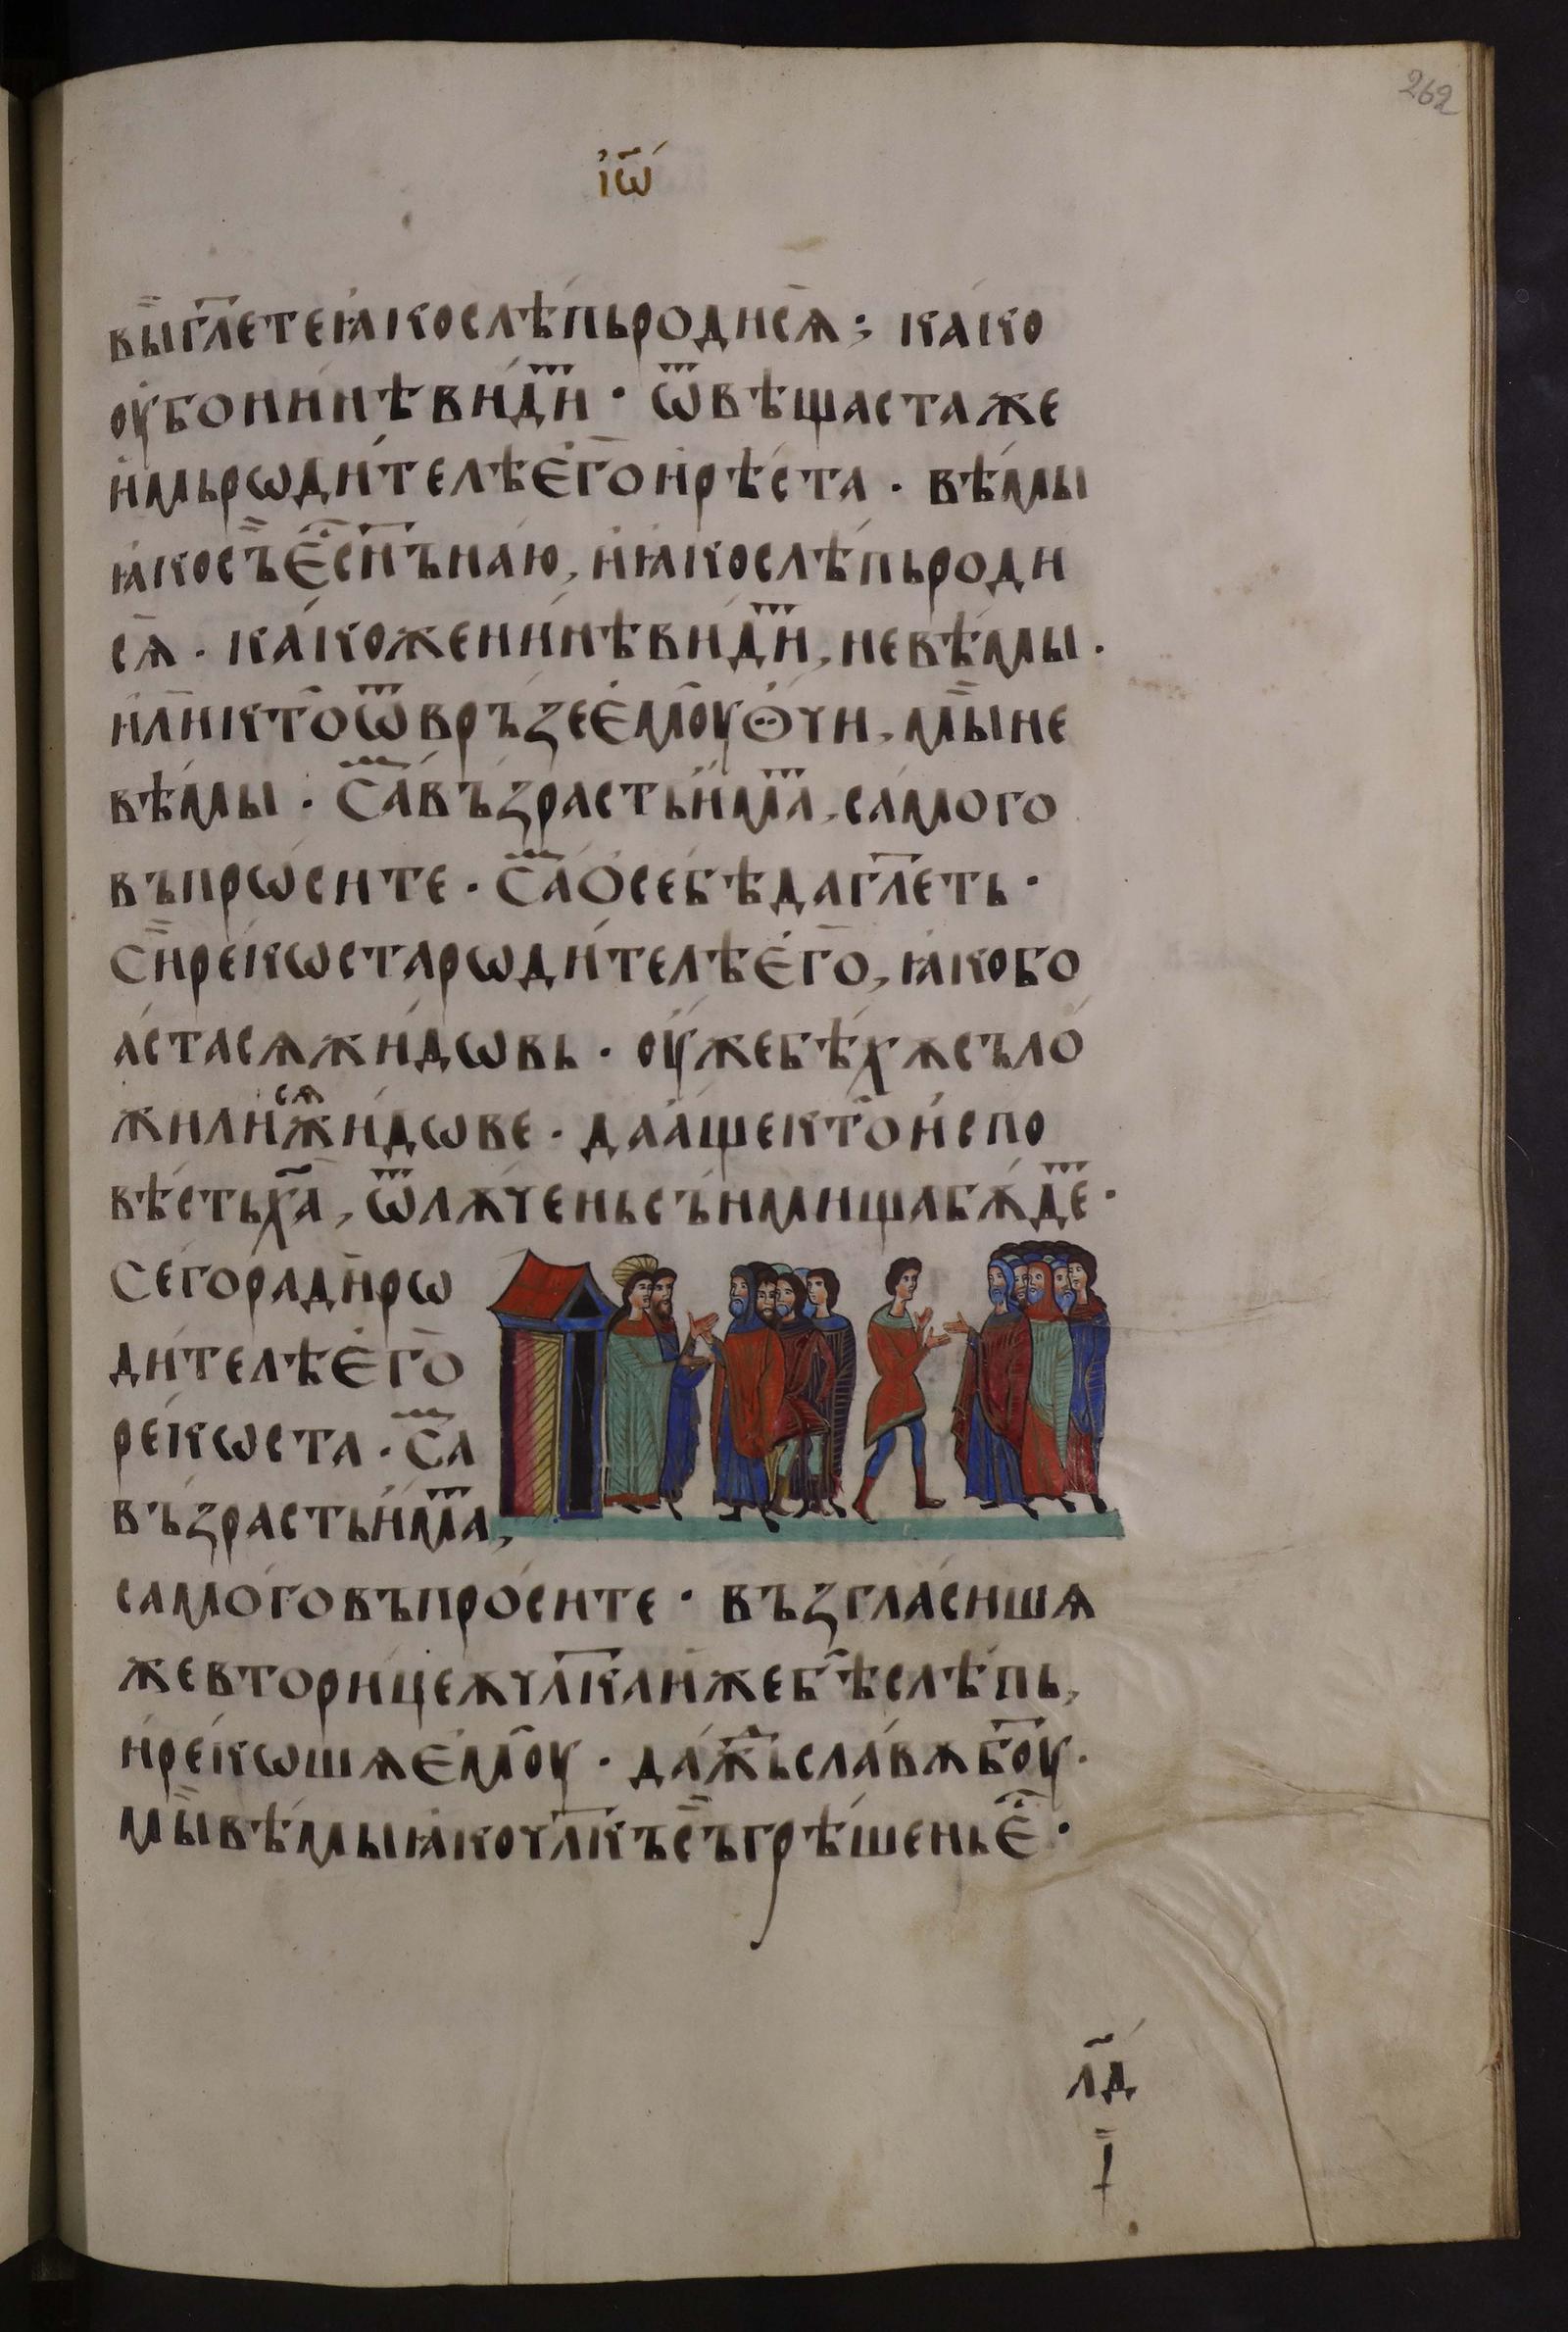 262
і҆ѡ҃
вы̏гл҃етеꙗ҆кослѣ́пьродисѧ̀; како
ѹ҆бонн҄нѣвн́дⷮн · ѿвѣщастаже
и҆мьрѡдн́телѣе҆го̀ирѣ́ста · вѣ́мы
ꙗ҆косъ̏е҆сн҃ънаю̀, иꙗ҆кослѣ́пьродн
сѧ̀ · ка́коженн́нѣвндⷮн, невѣ́мы ·
и҆лн̀кто̀ѿвръ́зее҆мѹ̀ѻ҆чн, мы̏не
вѣ́мы · са́въ́зрастьи҆мⷮа, самого
въпрѡ́снте · са́о҆себѣдагл҃еть ·
сн̏ре́кѡстарѡдн́телѣе҆го̀, ꙗ҆кобо
ꙗ҆́стасѧжн́дѡвь · ѹ҆́жебѣ́хѫсъло́
жнлнсѧжн́дѡве · даа҆́щекто̀и҆́спо
вѣ́стьха҃, ѿлѫ́ченьсъ́нмнщабѫ́дⷮе ·
Сегора́днрѡ
дн́телѣе҆го̀
ре́кѡста · са́
въ́зрастьи҆мⷮа,
самогоовъпро́снте · възгла́снша
жевторн́цеѫчл҃ка́нжебѣ̀слѣ́пь,
и҆ре́кѡшѧе҆мѹ̀ · да́ж̾ьсла́вѫбо҃ѹ ·
мы̏вѣ́мыꙗ҆кочл҃късъ̏грѣ́шенье҆́ ·
лд҃